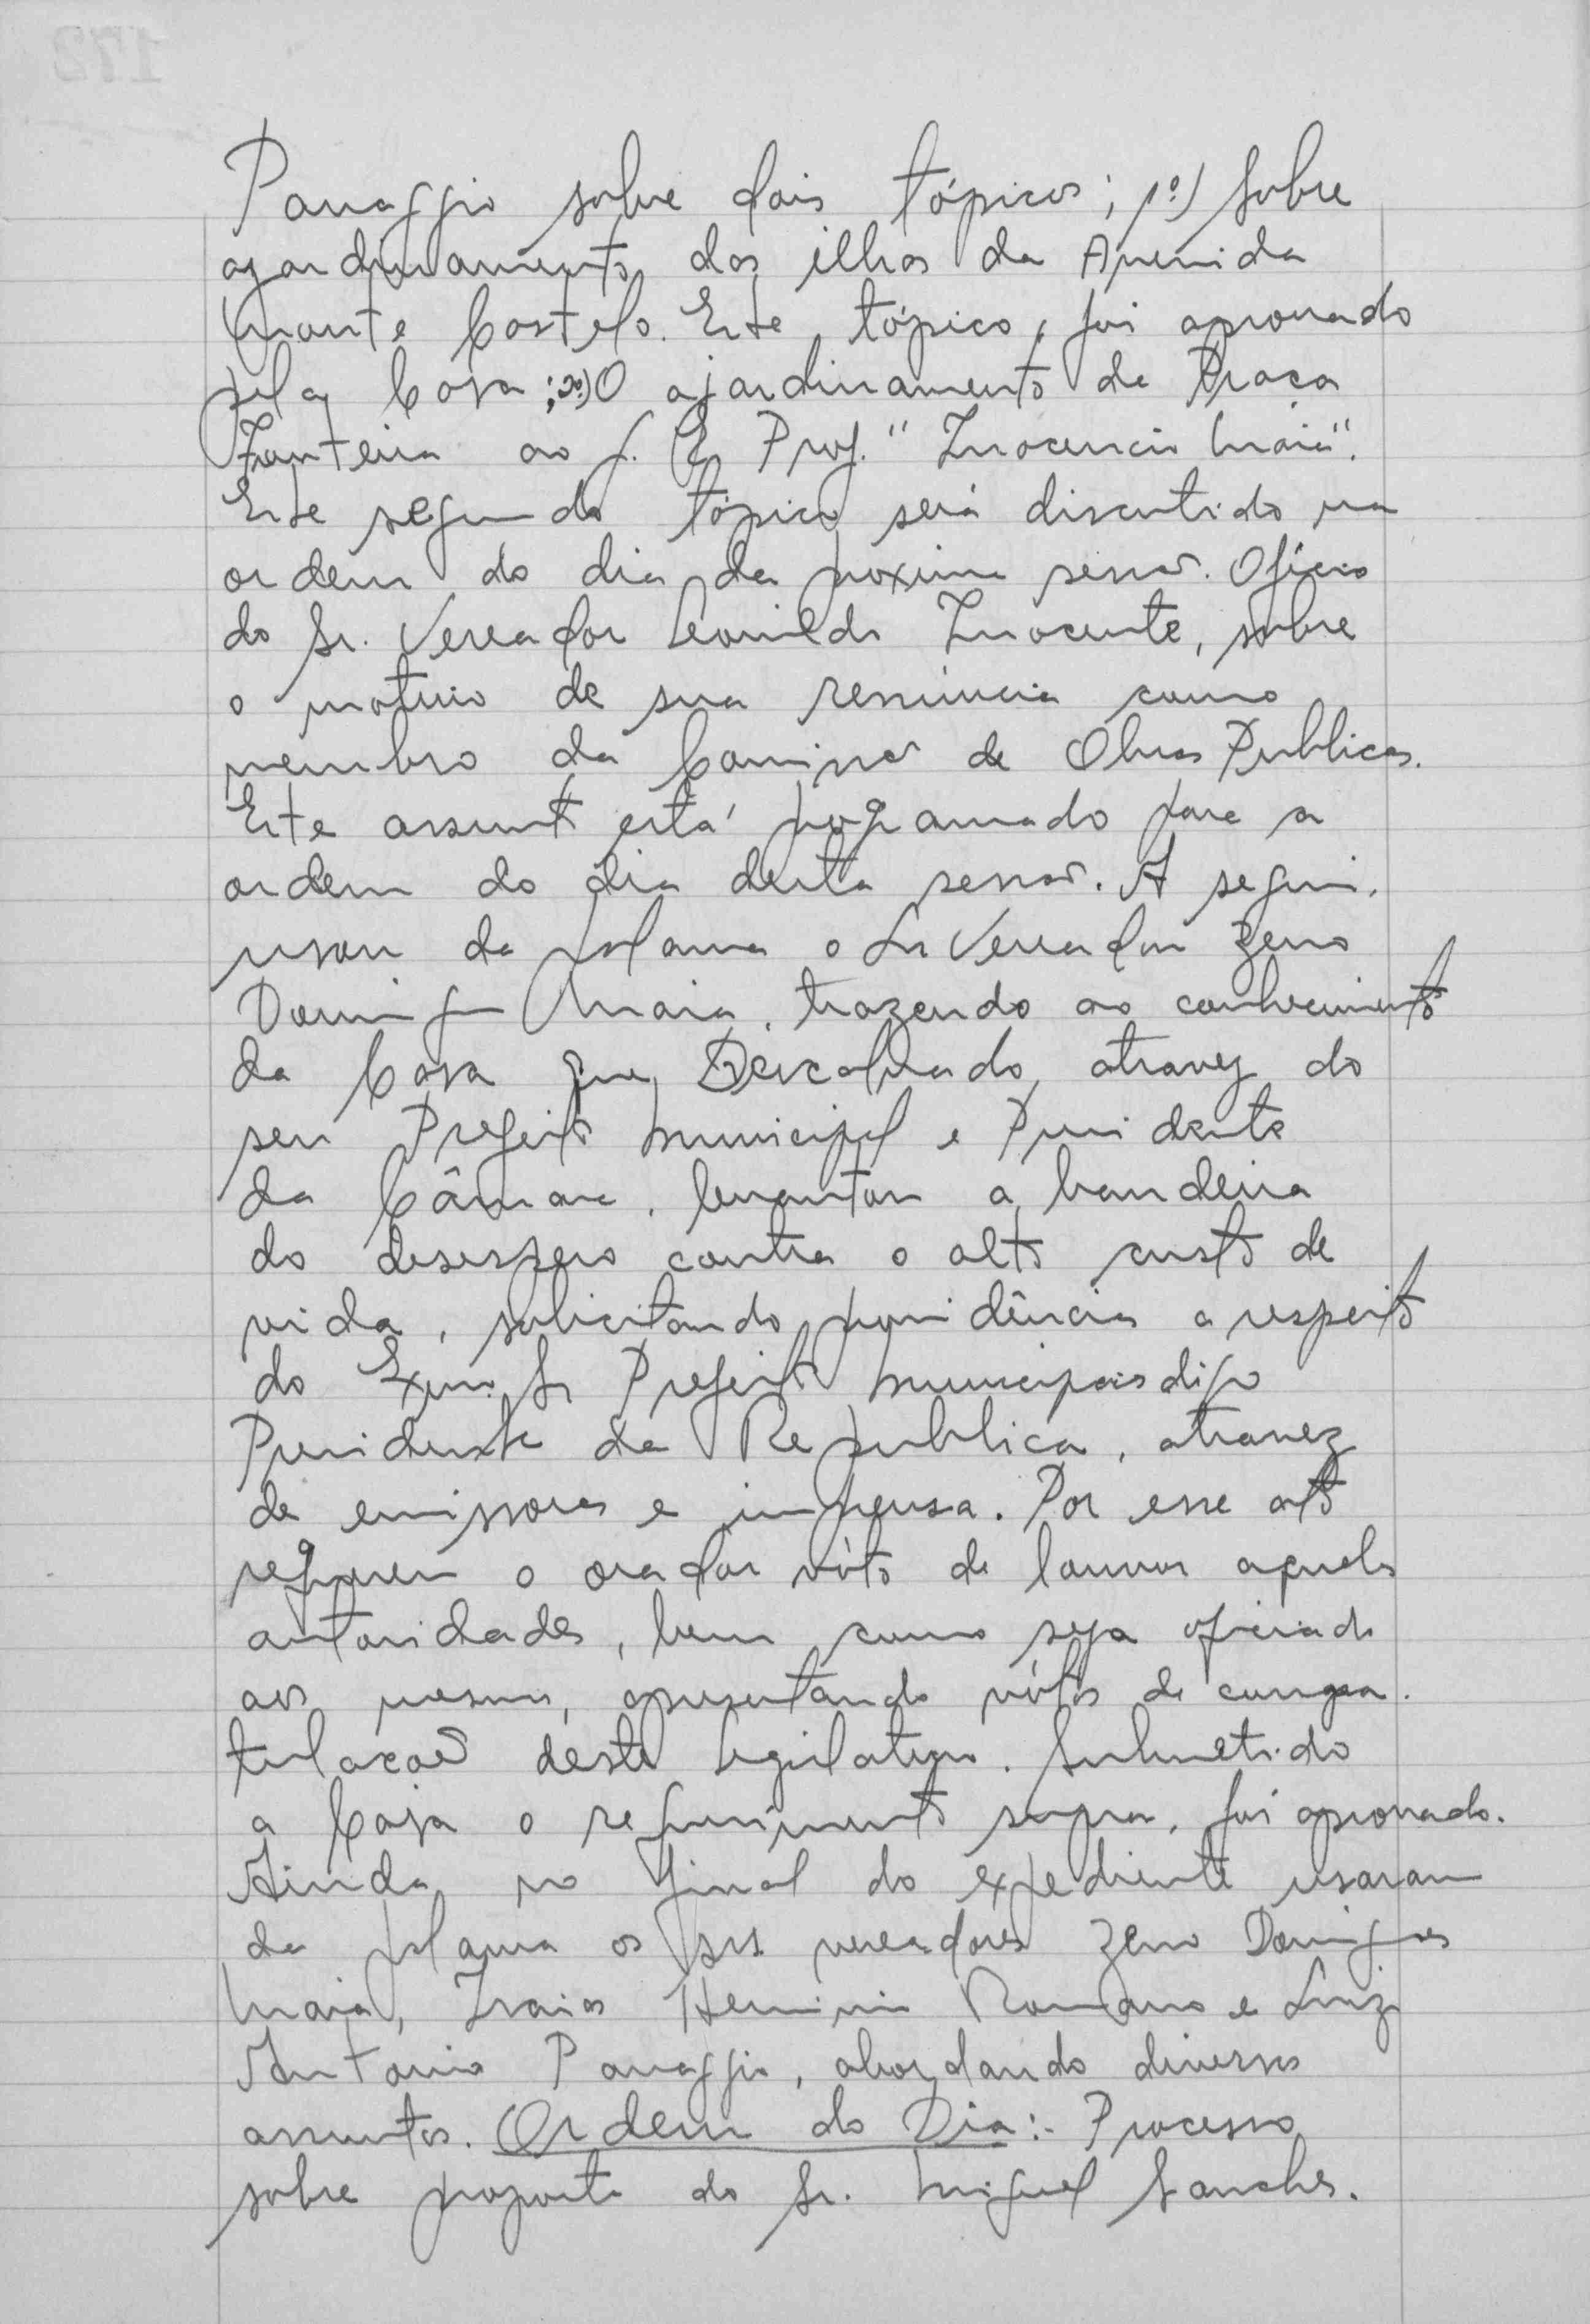 Panaggio sobre dois tópicos; 1º) Sobre
ajardinamento das ilhas da Avenida
Monte Castelo. Este tópico, foi aprovado
pela Casa; 2º) O ajardinamento de Praça
Fronteira ao G. E. Prof. "Inocencio Maia".
Este segundo tópico será discutido na
ordem do dia da proxima sessão. Oficio
do Sr. Vereador Leonildo Inocente, sobre
o motivo de sua renúncia como
membro da Comissão de Obras Publicas.
Este assunto está programado para a
ordem do dia desta sessão. A seguir,
usou da palavra o Sr Vereador Zeno
Domingos Maia, trazendo ao conhecimento
da Casa que Descalvado, atravez do
seu Prefeito Municipal e Presidente
da Câmara, levantou a bandeira
do desespero contra o alto custo de
vida, solicitando providências a respeito
do Exmo Sr Prefeito Municipais digo
Presidente da Republica, atravez
de emissoras e imprensa. Por esse ato
requereu o orador vóto de louvor aquelas
autoridades, bem como seja oficiado
aos mesmos, apresentando vótos de congra-
tulacão deste Legislativo. Submetido
a Casa o requerimento supra, foi aprovado.
Ainda no final do expediente usaram
da palavra os srs vereadores Zeno Domingos
Maia, Izaias Herminio Romano e Luiz
Antonio Panaggio, abordando diversos
assuntos. Ordem do Dia:- Processo
sobre proposta do Sr. Miguel Sanches.